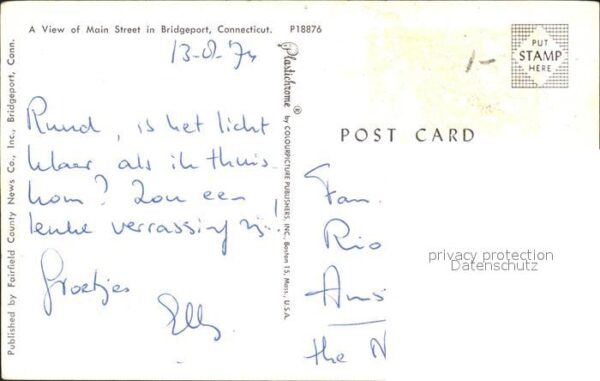 A View of Main Street in Bridgeport, Connecticut. P18876
13-8-74
Ruud, is het licht
klaar, als ik thuis
kom? Zou een
leuke verrassing zijn!
Groetjes
Elly
Published by Fairfield County News Co., Inc., Bridgeport, Conn.
Plastichrome ® by COLOURPICTURE PUBLISHERS, INC., Boston 15, Mass., U.S.A.
1-
PUT
STAMP
HERE
POST CARD
Fam.
Rio
privacy protection
Datenschutz
Ams
the N